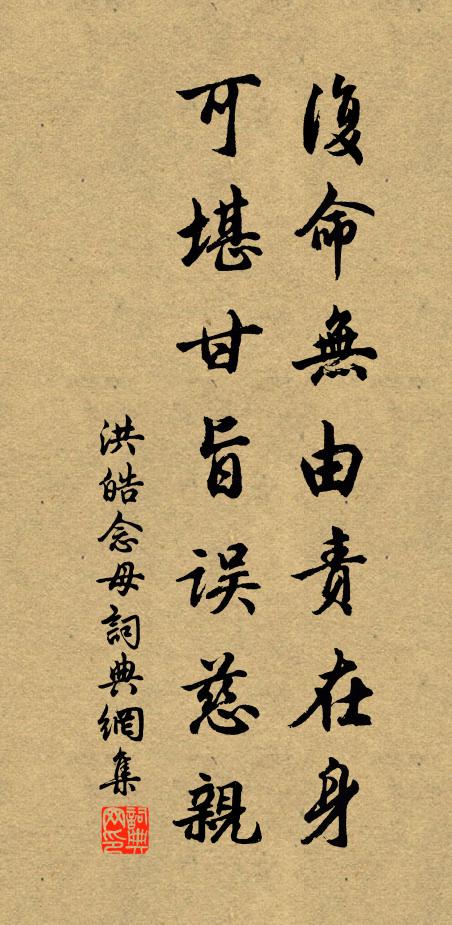 復命無由責在身
可堪甘旨誤慈親
洪皓念母詞典網集
詞典網印